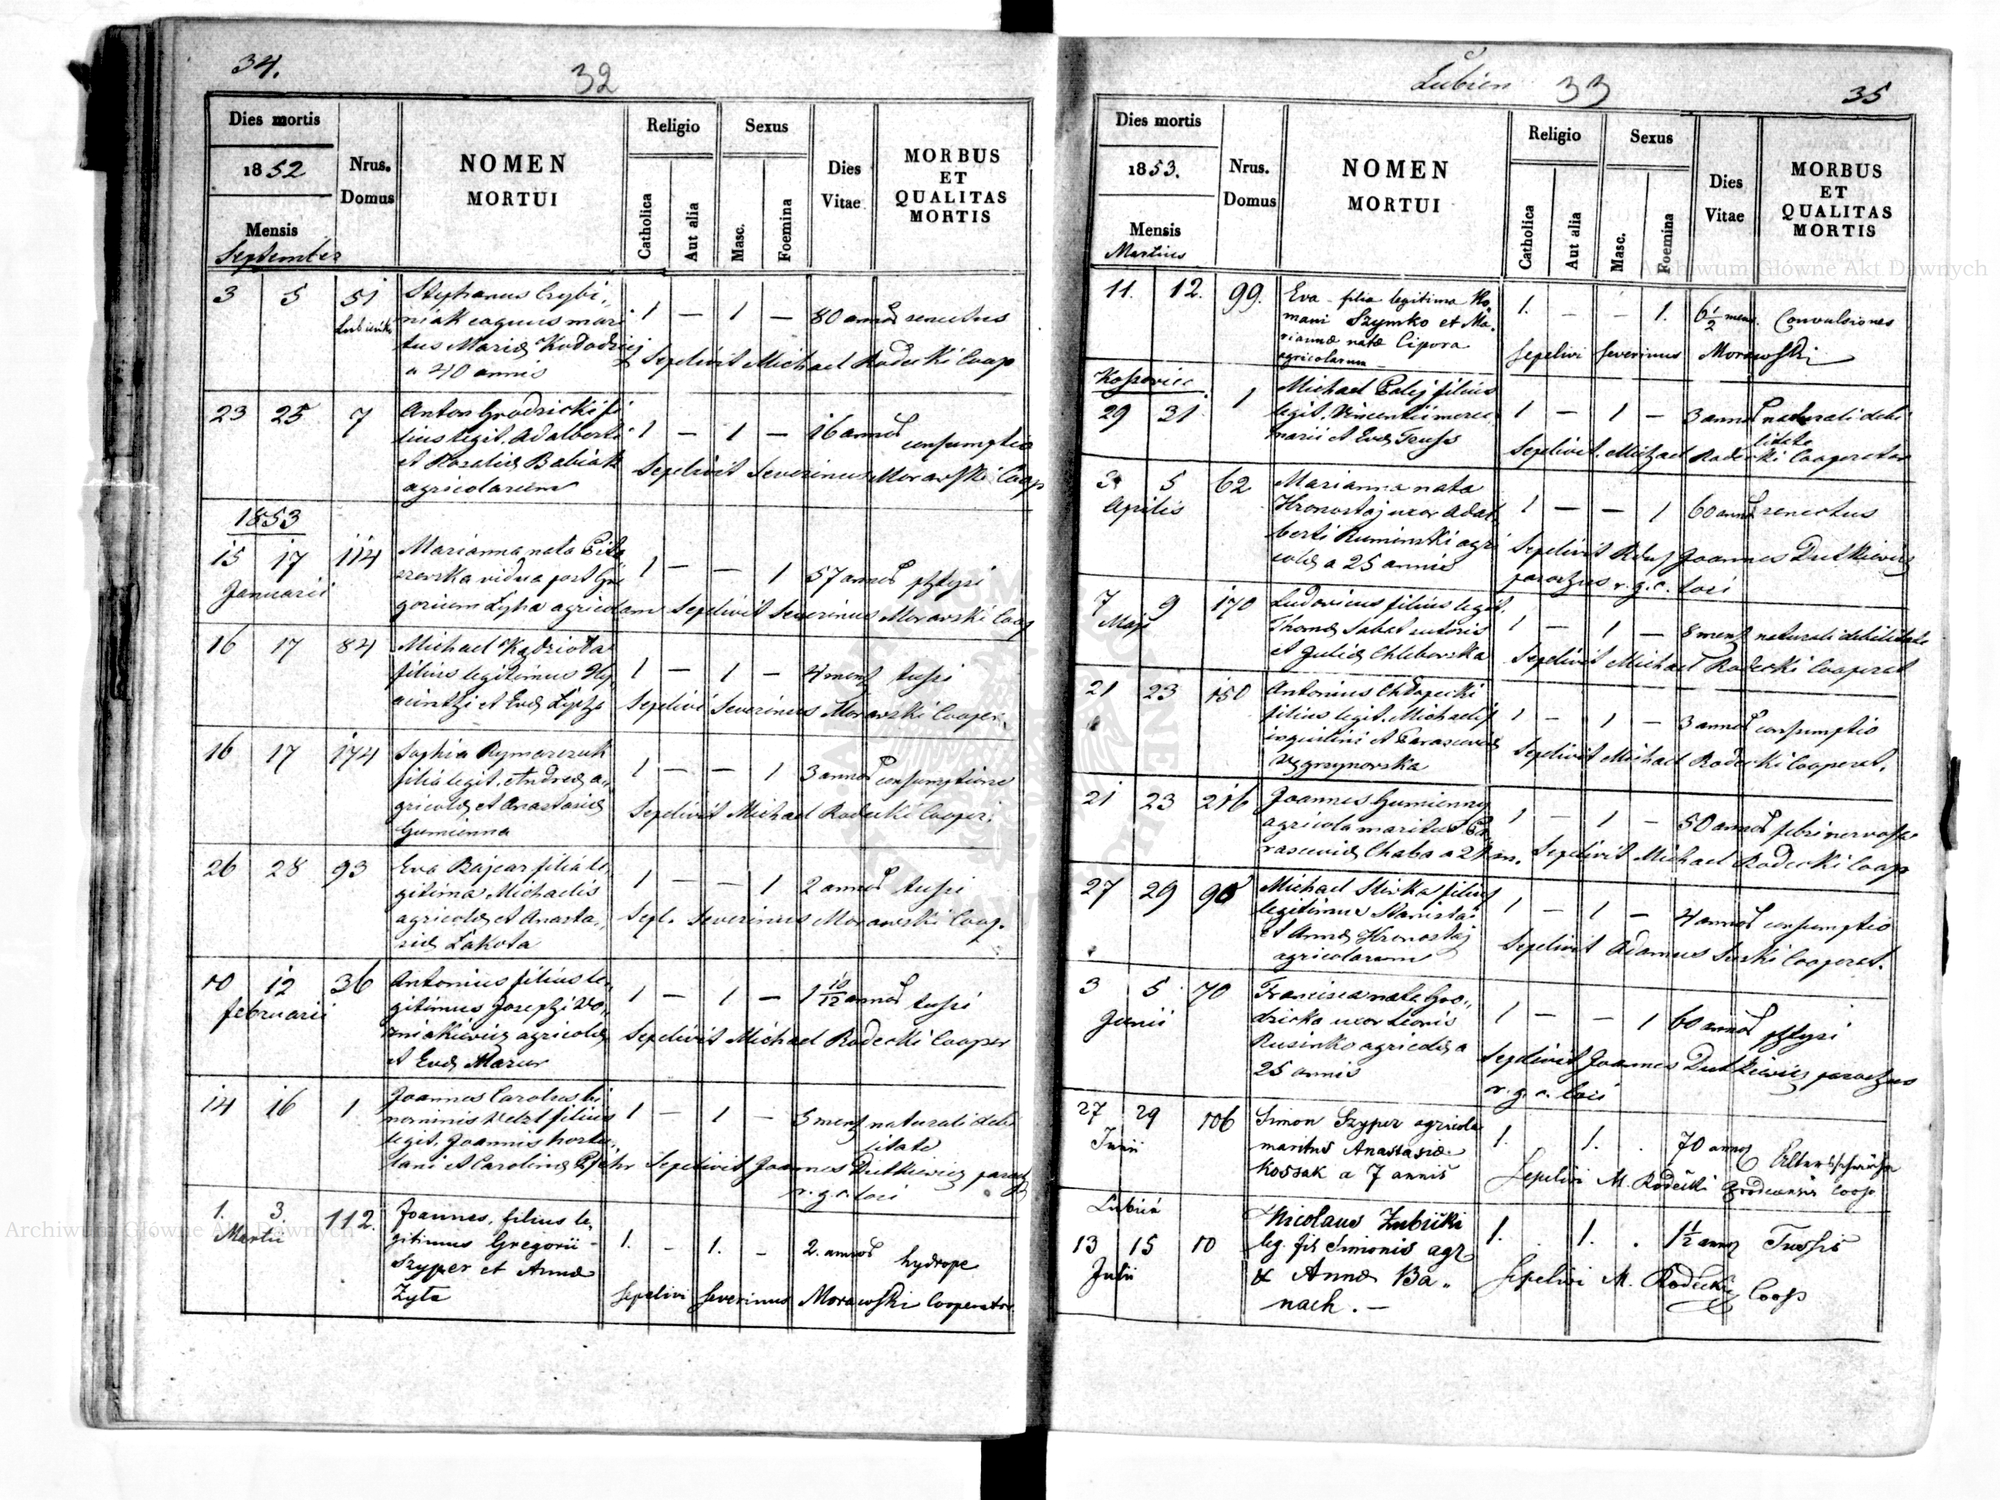 34.
32
Dies mortis
1852
Mensis
September
Nrus.
Domus
NOMEN
MORTUI
Religio
Catholica
Aut alia
Sexus
Masc.
Foemina
Dies
Vitae
MORBUS
ET
QUALITAS
MORTIS
3 5 51 Stephanus
coquus mari
tus Mariæ
a 40 annis
1 – 1 – 80 annos senectus
Sepelivit Michael Radecki Coop
23 25 7 Anton Grodzicki fi
lius legit. Adalberti
et Rosaliæ Babiak
agricolarum
1 – 1 – 16 annos consumptio
Sepelivit Severinus Morawski Coop
1853
15 17 114 Marianna nata
vidua post Gre
gorium Zyha agricolam
Januarii
1 – – 1 57 annos phtysi
Sepelivit Severinus Morawski Coop
16 17 84 Michael Kądziota
filius legitimus Hy
acinthi et Evæ
1 – 1 – 4 mens tussi
Sepelivi Severinus Morawski Cooper.
16 17 174 Sophia Rymarczuk
filia legit. Andreæ a,,
gricolæ et Anastasiæ
Gumienna
1 – – 1 3 annos consumptione
Sepelivit Michael Radecki Cooper.
26 28 93 Eva Bajcar filia le,,
gitima Michaelis
agricolæ et Anasta,,
siæ Łakota
1 – – 1 2 annos tussi
Sepl. Severinus Morawski Coop.
10 12 36 Antonius filius le,,
gitimus Josephi Wo,,
zniakiewicz agricolæ
et Evæ Mazur
februarii
1 – 1 – 1 10/12 annos tussi
Sepelivit Michael Radecki Cooper
14 16 1 Joannes Carolus bi
nominis Welzl filius
legit. Joannis hortu,,
lani et Carolinæ
1 – 1 – 3 mens naturali debi
litate
Sepelivit Joannes Dutkiewicz paroch
r. g. c. loci
1. 3 112. Joannes, filius le,
gitimus Gregorii –
Szyper et Annæ
Zyta
Martii
1. – 1. – 2. annos hydrope
Sepelivi Severinus Morawski Cooperator
Łubien
33
35
Dies mortis
1853.
Mensis
Martius
Nrus.
Domus
NOMEN
MORTUI
Religio
Catholica
Aut alia
Sexus
Masc.
Foemina
Dies
Vitae
MORBUS
ET
QUALITAS
MORTIS
11. 12. 99. Eva – filia legitima Ro,
mani Szymko et Ma,
riannæ natæ Cipora
agricolarum
1. – – 1. 6 1/2 mens. Convulsiones
Sepelivi Severinus Morawski
Kossowiec
29 31 1 Michael Palij filius
legit. Vincentii merce
narii et Evæ Teuss
1 – 1 – 3 annos naturali debi
litate
Sepelivit. Michael Radecki Cooperator
3 5 62 Marianna nata
Hronostaj uxor Adal,
berti Ruminski agri
colæ a 25 annis
Aprilis
1 – – 1 60 annos senectus
Sepelivit Joannes Dutkiewicz
parochus r. g. c. loci
7 9 170 Ludovicus filius legit.
Thomæ Sabat sutoris
et Juliæ Chlebowska
Maji
1 – 1 – 8 mens naturali debilitate
Sepelivit Michael Radecki Cooperat
21 23 150 Antonius Chłopecki
filius legit. Michaelis
inquilini et Parasceviæ
Węgrzynowska
1 – 1 – 3 annos consumptio
Sepelivit Michael Radecki Cooperat.
21 23 216 Joannes Gumienny
agricola maritus Pa,
rasceviæ Chaba a 24 an.
1 – 1 – 50 annos febri nervosa
Sepelivit Michael Radecki Coop
27 29 98 Michael filius
legitimus Stanislai
et Annæ Hronostaj
agricolarum
1 – 1 – 4 annos consumptio
Sepelivit Adamus Cooperat.
3 5 70 Francisca nata Gro,,
dzicka uxor Leonis
Rusinko agricolæ a
25 annis
Junii
1 – – 1 60 annos phtysi
Sepelivit Joannes Dutkiewicz parochus
r. g. c. loci
27 29 106 Simon Szyper agricola
maritus Anastasiæ
Kossak a 7 annis
Junii
1. 1. . 70 annos Altersschwäche
Sepelivi M. Radecki Grodecensis Coop
Lubień
13 15 10 Nicolaus Zubicki
leg. fil. Simonis agr
et Annæ Ba,,
nach. –
Julii
1. . 1. . 1 1/2 annos Tussis
Sepelivi M. Radecki Coop
Archiwum Główne Akt Dawnych
Archiwum Główne Akt Dawnych